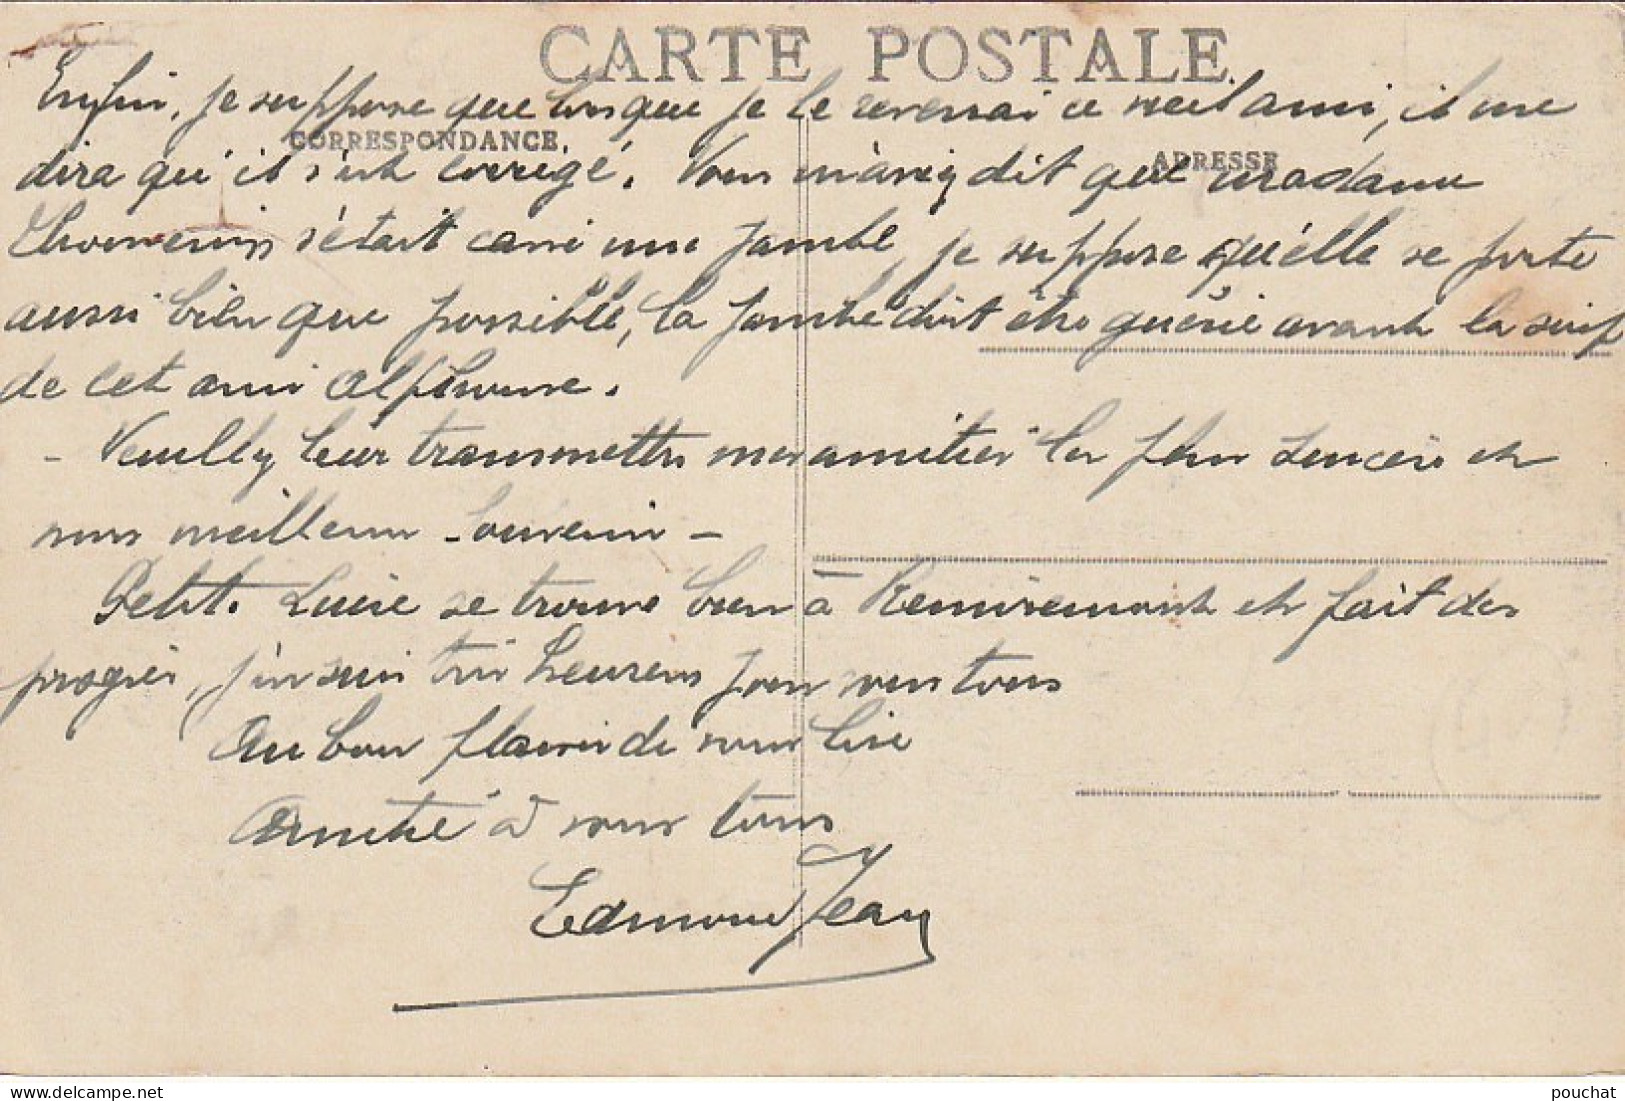 CARTE POSTALE
Enfin, je suppose que lorsque je le reverrai ce vieil ami, il me
CORRESPONDANCE
ADRESSE
dira qu'il s'est corrigé. Vous m'aviez dit que madame
s'était cassé une jambe, je suppose qu'elle se porte
aussi bien que possible, la jambe doit être guérie avant la soif
de cet ami Alphonse.
- Veuillez leur transmettre mes amitiés les plus sincères et
mes meilleurs souvenirs -
Petite Lucie se trouve bien à Remiremont et fait des
progrès, j'en suis très heureux pour vous tous
Au bon plaisir de vous lire
Amitié à vous tous
Edmond Jean
pouchat